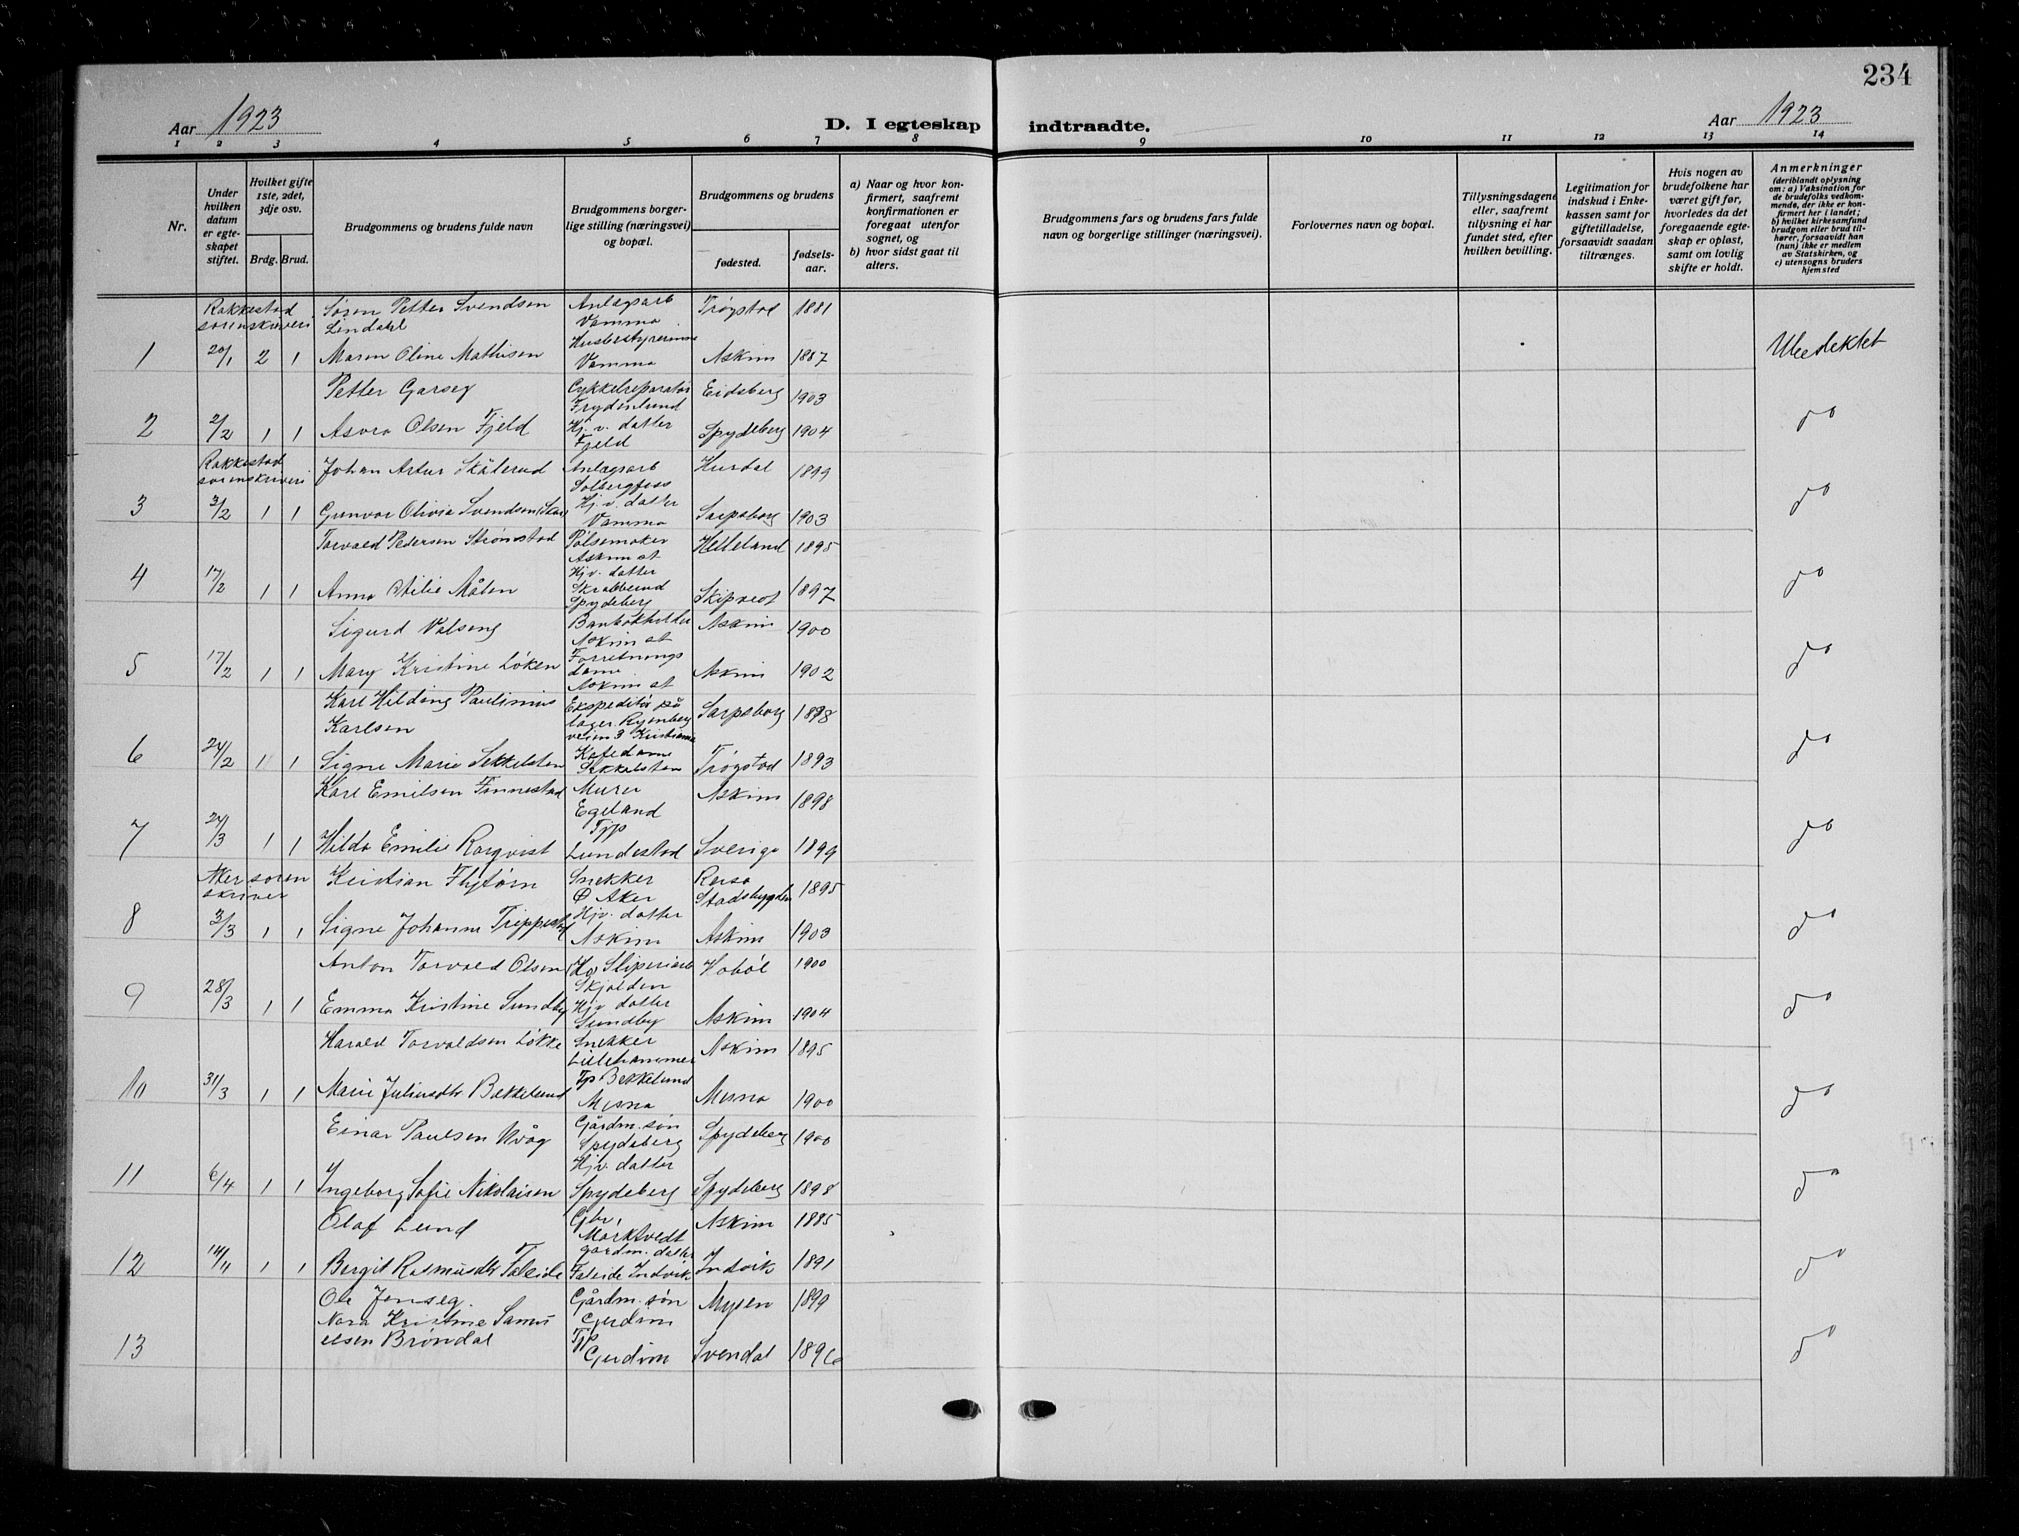 234
Aar 1923
D. I egteskap indtraadte.
Aar 1923
1 2 3 4 5 6 7 8 9 10 11 12 13 14
Nr.
Under hvilken datum er egteskapet stiftet.
Hvilket gifte 1ste, 2det, 3dje osv.
Brdg. Brud.
Brudgommens og brudens fulde navn
Brudgommens borgerlige stilling (næringsvei) og bopæl.
Brudgommens og brudens
fødested.
fødselsaar.
a) Naar og hvor konfirmert, saafremt konfirmationen er foregaat utenfor sognet, og
b) hvor sidst gaat til alters.
Brudgommens fars og brudens fars fulde navn og borgerlige stillinger (næringsvei).
Forlovernes navn og bopæl.
Tillysningsdagene eller, saafremt tillysning ei har fundet sted, efter hvilken bevilling.
Legitimation for indskud i Enkekassen samt for giftetilladelse, forsaavidt saadan tiltrænges.
Hvis nogen av brudefolkene har været gift før, hvorledes da det foregaaende egteskap er opløst, samt om lovlig skifte er holdt.
Anmerkninger
(deriblandt oplysning om: a) Vaksination for de brudefolks vedkommende, der ikke er konfirmert her i landet; b) hvilket kirkesamfund brudgom eller brud tilhører, forsaavidt han (hun) ikke er medlem av Statskirken, og c) utensogns bruders hjemsted
Rakkestad sorenskriveri Søren Petter Svendsen Lindahl Anlægsarb Vamma Trøgstad 1881
1 20/1 2 1 Maren Oline Mathisen Husbestyrerinne Vamma Askim 1887
Petter Garseg Cykkelreparatør Frydenlund Eidsberg 1903
2 2/2 1 1 Asora Olsen Fjeld Hj. v. datter Fjeld Spydeberg 1904 do
Rakkestad sorenskriveri Johan Artur Skålerud Anlægsarb Solbergfoss Hurdal 1899
3 3/2 1 1 Gunvor Olivia Svendsen Hj. v. datter Vamma Sarpsborg 1903 do
Torvald Pedersen Strømstad Pølsemaker Askim st Helleland 1895
4 17/2 1 1 Anna Målen Hjv. datter Skrabberud Spydeberg 1897 do
Sigurd Valseng Askim st Askim 1900
5 17/2 1 1 Mary Kristine Løken Forretningsdame Askim st Askim 1902 do
Karl Hilding Paulinius Karlsen Ekspeditør på lager veien 3 Kristiania Sarpsborg 1898
6 24/2 1 1 Signe Marie Sekkelsten Kafedame Sekkelsten Trøgstad 1893 do
Karl Emilsen Finnestad Murer Egeland Askim 1898
7 24/3 1 1 Hilda Emilie Rorqvist Tjp Lundestad Sverige 1899 do
Aker sorenskriver Kristian Flytørn Snekker Ø Aker Rissa Stadsbygden 1895
8 3/3 1 1 Signe Johanne Hjv. datter Askim Askim 1903 do
Anton Torvald Olsen Sliperiarb Skjolden Hobøl 1900
9 28/3 1 1 Emma Kristine Sundby Hjv datter Sundby Askim 1904 do
Harald Torvaldsen Løkke Snekker Lillehammer Askim 1895
10 31/3 1 1 Marie Juliusdtr Bekkelund Tjp Bekkelund Mesna Mesna 1900 do
Einar Paulsen Kråg Gårdm. søn Spydeberg Spydeberg 1900
11 6/4 1 1 Ingeborg Sofie Nikolaisen Hjv. datter Spydeberg Spydeberg 1898 do
Olaf Lund Gbr, Morktvedt Askim 1885
12 14/11 1 1 Bergit Rasmusdtr Faleide gardm. datter Faleide Indvik Indvik 1891 do
Ole Jenseg Gårdm. søn Gudim Mysen 1899
13 Nora Kristine Samuelsen Brøndal Tjp Gudim Svendal 1896 do